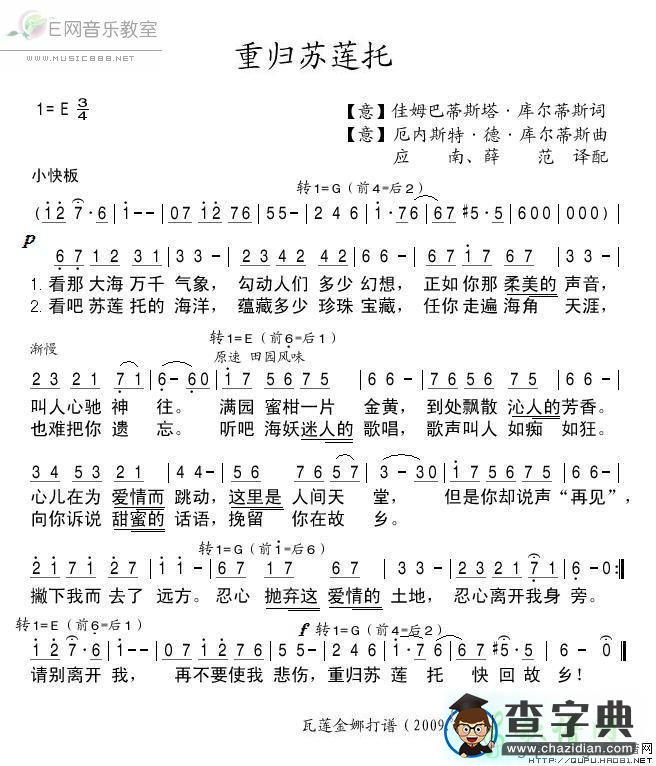 E网音乐教室
www.MUSIC888.NET
重归苏莲托
1=E 3/4
【意】佳姆巴蒂斯塔·库尔蒂斯词
【意】厄内斯特·德·库尔蒂斯曲
应 南、薛 范 译配
小快板
转1=G（前4=后2）
(i 2 7·6 | i - - | 0 7 i 2 7 6 | 5 5 - | 2 4 6 | i·7 6 | 6 7 #5·5 | 6 0 0 | 0 0 0 ) |
p
6 7 1 2 3 1 | 3 3 - | 2 3 4 2 | 4 4 - | 6 7 i 7 | 6 7 6 |
1.看那 大海 万千 气象， 勾动人们 多少 幻想， 正如你那 柔美的 声音，
2.看吧 苏莲 托的 海洋， 蕴藏多少 珍珠 宝藏， 任你走遍 海角 天涯，
渐慢
转1=E（前6=后1）
原速 田园风味
2 3 2 1 7 1 | 6 - 6 0 | i 7 5 6 7 5 | 6 6 - | 7 6 5 6 7 5 | 6 6 - |
叫人心驰 神 往。 满园 蜜柑一片 金黄， 到处飘散 沁人的芳香。
也难把你 遗 忘。 听吧 海妖迷人的 歌唱， 歌声叫人 如痴 如狂。
3 4 5 3 2 1 | 4 4 - | 5 6 i 7 | 7 6 5 7 | 3 - 3 0 | i 7 5 6 7 5 | 6 6 - |
心儿在为 爱情而 跳动，这里是 人间天 堂， 但是你却说声“再见”，
向你诉说 甜蜜的 话语，挽留 你在故 乡。
转1=G（前i=后6）
2 1 7 1 2 7 | i i - | 6 7 1 7 | 6 7 6 | 3 3 - | 2 3 2 1 7 1 | 6 - 0 :|
撇下我而 去了 远方。忍心 抛弃这 爱情的 土地，忍心离开我身 旁。
转1=E（前6=后1）
f 转1=G（前4=后2）
i 2 7·6 | i - - | 0 7 i 2 7 6 | 5 5 - | 2 4 6 | i·7 6 | 6 7 #5·5 | 6 - 0 |
请别离开 我， 再不要使我 悲伤，重归苏 莲 托 快 回故 乡！
瓦莲金娜打谱（2009
查字典
www.chazidian.com
http://QUPU.HAO81.NET